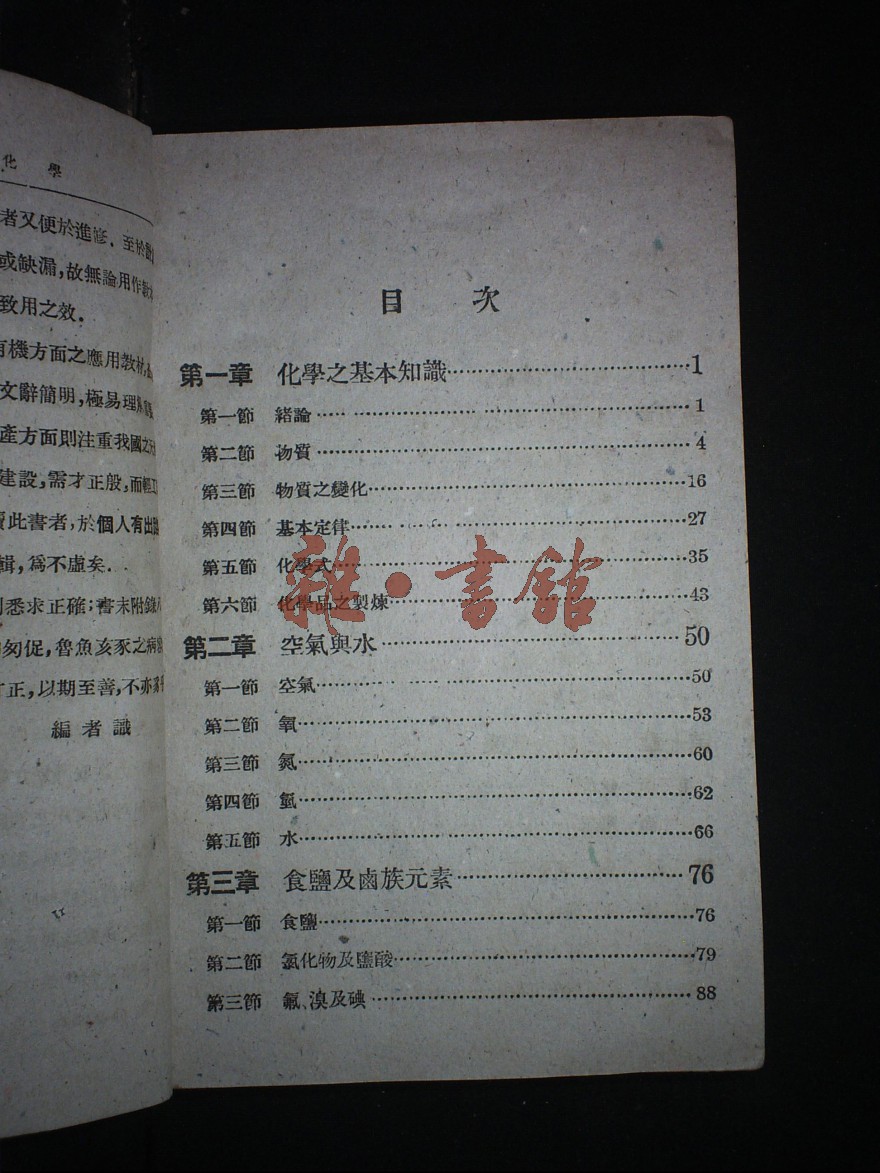 化學
者又便於進修．至於
或缺漏,故無論用作教
致用之效．
有機方面之應用教材
文辭簡明,極易理
產方面則注重我國之
建設,需才正殷,而輕工
此書者,於個人有出
輯,爲不虛矣．
悉求正確;書末附錄
匆促,魯魚亥豕之病
正,以期至善,不亦
編者識
目次
第一章 化學之基本知識……1
第一節 緒論……1
第二節 物質……4
第三節 物質之變化……16
第四節 基本定律……27
第五節 化學式……35
第六節 化學品之製煉……43
雜·書館
第二章 空氣與水……50
第一節 空氣……50
第二節 氧……53
第三節 氮……60
第四節 氫……62
第五節 水……66
第三章 食鹽及鹵族元素……76
第一節 食鹽……76
第二節 氯化物及鹽酸……79
第三節 氟、溴及碘……88